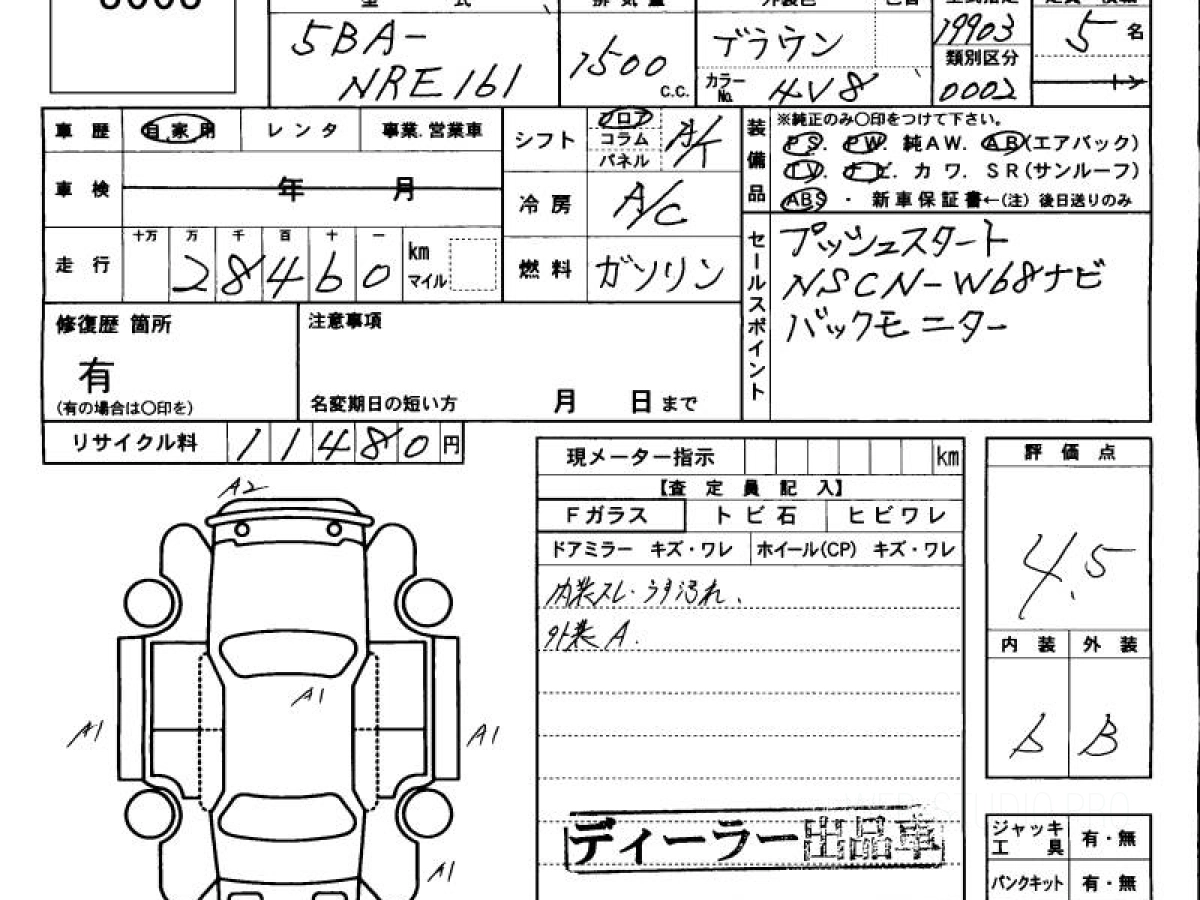 型 式
排気量
5BA-
NRE161
1500
c.c.
ブラウン
カラー
No.
4V8
19903
類別区分
0002
5 名
車歴 自家用 レンタ 事業.営業車
車検 年 月
走行 十万 万 千 百 十 一
28460
km
マイル
シフト フロア
コラム
パネル
A/T
冷房 A/C
燃料 ガソリン
装備品
※純正のみ○印をつけて下さい。
PS. PW. 純AW. AB(エアバック)
TV. ナビ. カワ. SR(サンルーフ)
ABS ・ 新車保証書←(注) 後日送りのみ
セールスポイント
プッシュスタート
NSCN-W68ナビ
バックモニター
修復歴 箇所
有
(有の場合は○印を)
注意事項
名変期日の短い方 月 日まで
リサイクル料 11480円
現メーター指示 km
【査定員記入】
Fガラス トビ石 ヒビワレ
ドアミラー キズ・ワレ ホイール(CP) キズ・ワレ
内装スレ・うす汚れ.
外装A.
ディーラー出品車
評価点
4.5
内装 外装
B
A2
A1
A1
A1
A1
ジャッキ
工具
有・無
パンクキット 有・無